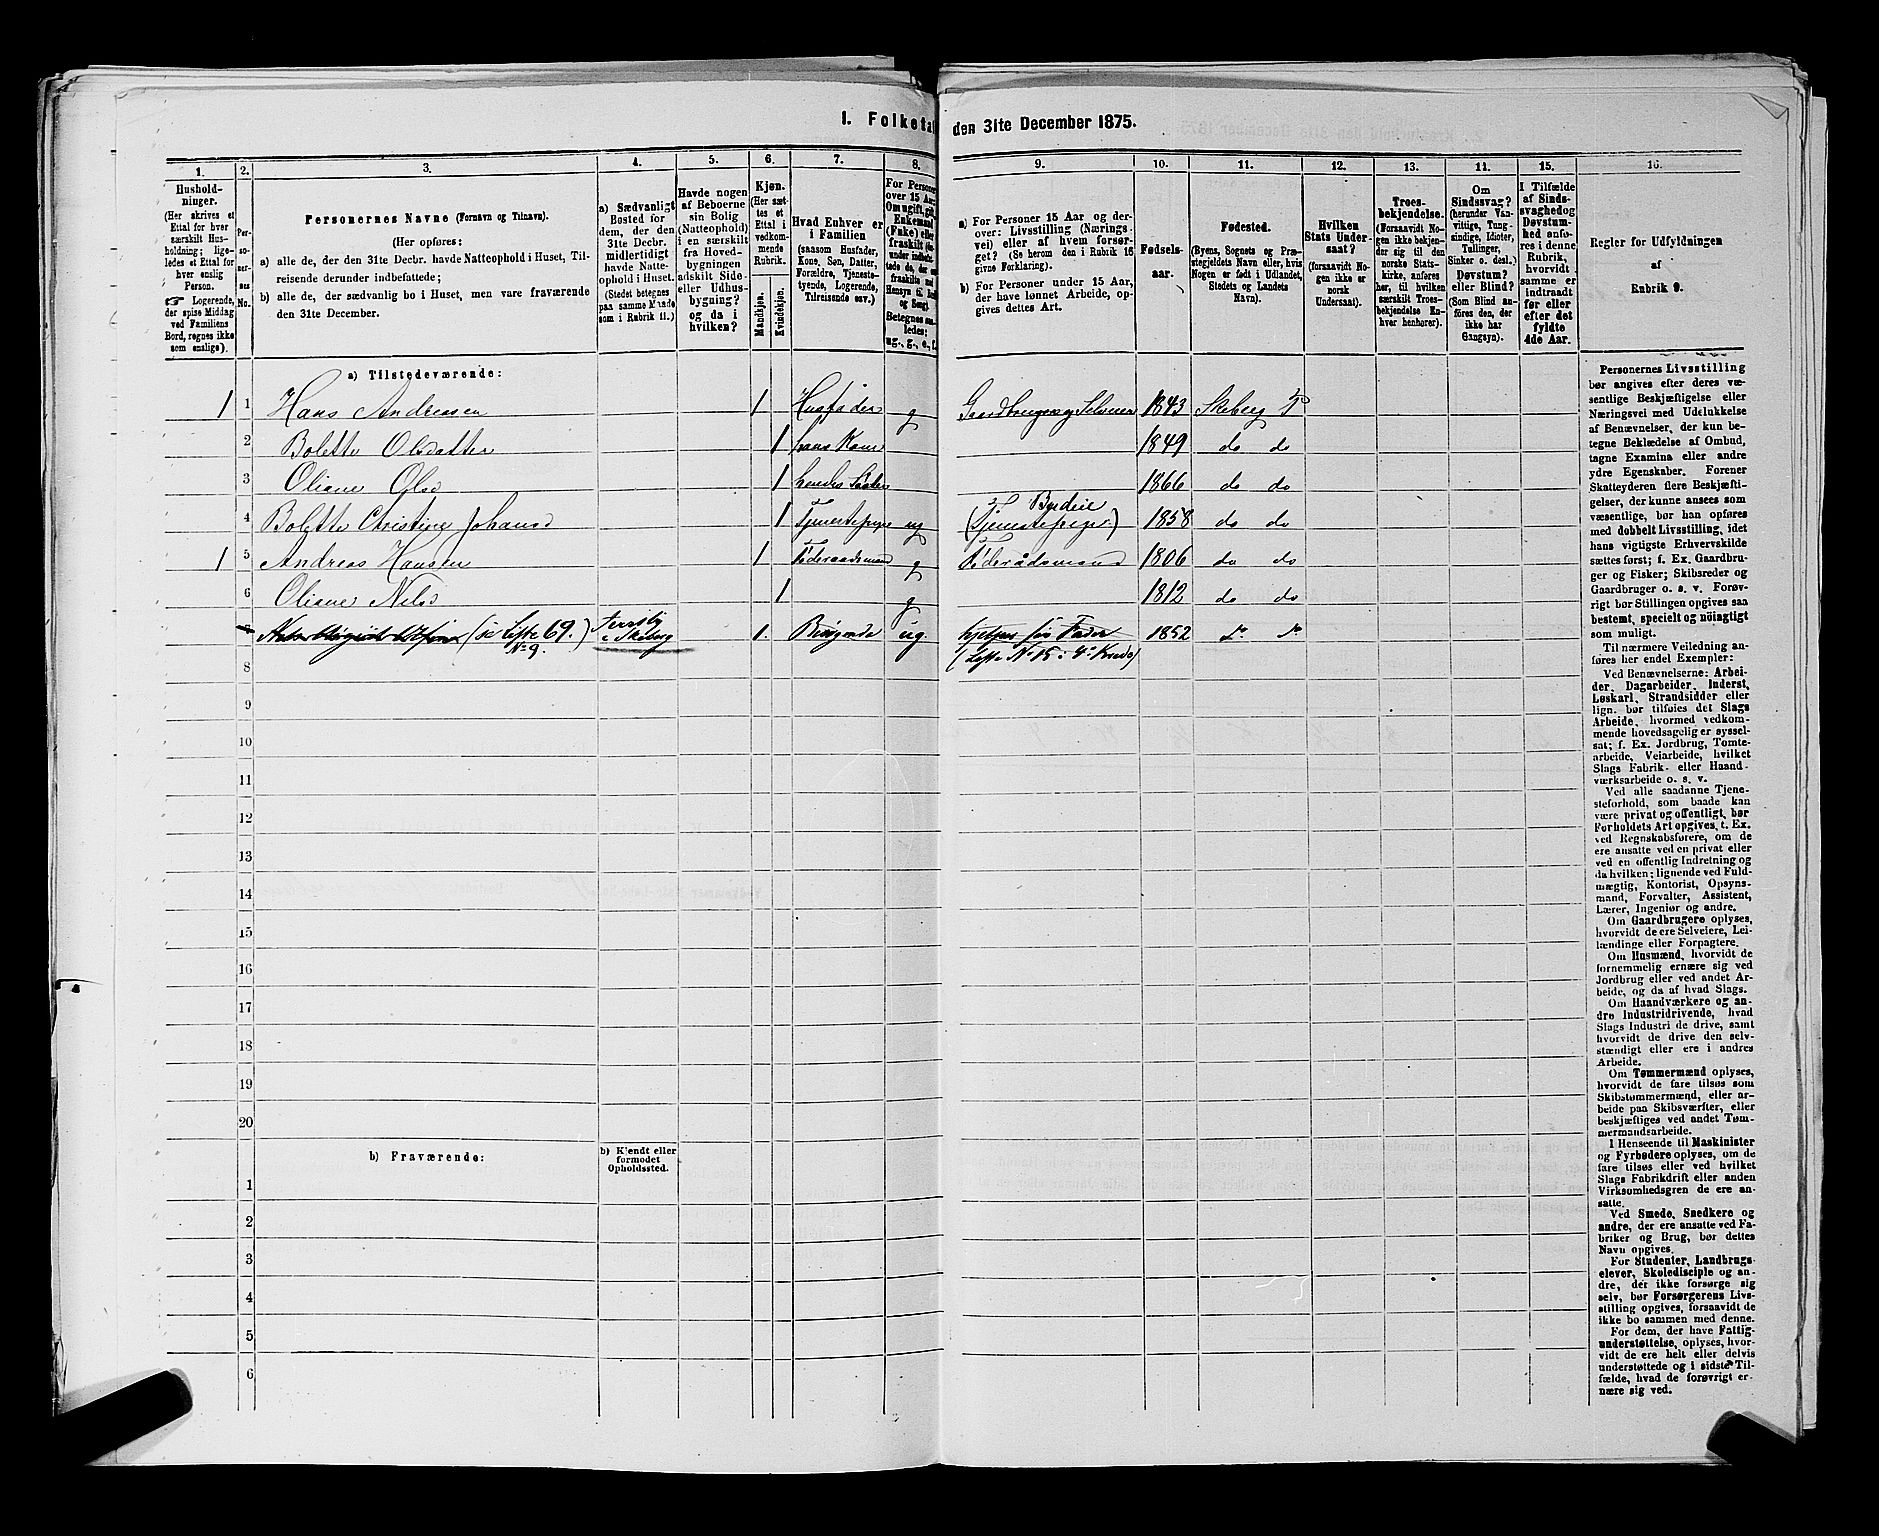 I. Folketal
den 31te December 1875.
1. 2. 3. 4. 5. 6. 7. 8. 9. 10. 11. 12. 13. 14. 15. 16.
Hushold-
ninger.
(Her skrives et
Ettal for hver
særskilt Hus-
holdning; lige-
ledes et Ettal for
hver enslig
Person.
Logerende,
der spise Middag
ved Familiens
Bord, regnes ikke
som enslige).
Per-
so-
ner-
nes
No.
Personernes Navne (Fornavn og Tilnavn).
(Her opføres:
a) alle de, der den 31te Decbr. havde Natteophold i Huset, Til-
reisende derunder indbefattede;
b) alle de, der sædvanlig bo i Huset, men vare fraværende
den 31te December.
a) Sædvanligt
Bosted for
dem, der den
31te Decbr.
midlertidigt
havde Natte-
ophold i Huset.
(Stedet betegnes
paa samme Maade
som i Rubrik 11.)
Havde nogen
af Beboerne
sin Bolig
(Natteophold)
i en særskilt
fra Hoved-
bygningen
adskilt Side-
eller Udhus-
bygning?
og da i
hvilken?
Kjøn.
(Her sæt-
tes et
Ettal i
vedkom-
mende
Rubrik.
Mandkjøn.
Kvindekjøn.
Hvad Enhver er
i Familien
(saasom Husfader,
Kone, Søn, Datter,
Forældre, Tjeneste-
tyende, Logerende,
Tilreisende osv.)
For Personer
over 15 Aar:
Om ugift, gift,
Enkemand
(Enke) eller
fraskilt
Betegnes saa-
ledes:
ug., g., e., f.
a) For Personer 15 Aar og der-
over: Livsstilling (Nærings-
vei) eller af hvem forsør-
get? (Se herom den i Rubrik 16
givne Forklaring).
b) For Personer under 15 Aar,
der have lønnet Arbeide, op-
gives dettes Art.
Fødsels-
aar.
Fødested.
(Byens, Sognets og Præ-
stegjeldets Navn eller, hvis
Nogen er født i Udlandet,
Stedets og Landets
Navn).
Hvilken
Stats Under-
saat?
(forsaavidt No-
gen ikke er
norsk
Undersaat).
Troes-
bekjendelse.
(Forsaavidt No-
gen ikke bekjen-
der sig til den
norske Stats-
kirke, anføres
her, til hvilken
særskilt Troes-
bekjendelse En-
hver henhører).
Om
Sindssvag?
(herunder Van-
vittige, Tung-
sindige, Idioter,
Tullinger,
Sinker o. desl.)
Døvstum?
eller Blind?
(Som Blind an-
føres den, der
ikke har
Gangsyn).
I Tilfælde
af Sinds-
svaghed og
Døvstum-
hed anfø-
res i denne
Rubrik,
hvorvidt
samme er
indtraadt
før eller
efter det
fyldte
4de Aar.
Regler for Udfyldningen
af
Rubrik 9.
a) Tilstedeværende:
1 1 Hans Andreasen 1 Husfader g Gaardbruger og Selveier 1843 Skeberg P
2 Bolette Olsdatter 1 hans Kone 1849 do do
3 Oliane Olsd 1 hendes Søster 1866 do do
4 Bolette Christine Johansd 1 Tjenestepige ug (Tjenestepige) 1858 do do
1 5 Andreas Hansen 1 Føderaadsmand g Føderådsmand 1806 do do
6 Oliane Nilsd 1 g 1812 do do
(se Liste 69.) 1. Besøgende ug. hjelper sin Fader 1852
No 9. (Liste No 15
8
9
10
11
12
13
14
15
16
17
18
19
20
b) Fraværende:
b) Kjendt eller
formodet
Opholdssted.
1
2
3
4
5
6
Personernes Livsstilling
bør angives efter deres væ-
sentlige Beskjæftigelse eller
Næringsvei med Udelukkelse
af Benævnelser, der kun be-
tegne Beklædelse af Ombud,
tagne Examina eller andre
ydre Egenskaber. Forener
Skatteyderen flere Beskjæfti-
gelser, der kunne ansees som
væsentlige, bør han opføres
med dobbelt Livsstilling, idet
hans vigtigste Erhvervskilde
sættes først; f. Ex. Gaardbru-
ger og Fisker; Skibsreder og
Gaardbruger o. s. v. Forøv-
rigt bør Stillingen opgives saa
bestemt, specielt og nöiagtigt
som muligt.
Til nærmere Veiledning an-
føres her endel Exempler:
Ved Benævnelserne: Arbei-
der, Dagarbeider, Inderst,
Løskarl, Strandsidder eller
lign. bør tilføies det Slags
Arbeide, hvormed vedkom-
mende hovedsagelig er syssel-
sat; f. Ex. Jordbrug, Tomte-
arbeide, Veiarbeide, hvilket
Slags Fabrik- eller Haand-
værksarbeide o. s. v.
Ved alle saadanne Tjene-
steforhold, som baade kan
være privat og offentligt, bør
Forholdets Art opgives, t. Ex.
ved Regnskabsførere, om de
ere ansatte ved en privat eller
ved en offentlig Indretning og
da hvilken; lignende ved Fuld-
mægtig, Kontorist, Opsyns-
mand, Forvalter, Assistent,
Lærer, Ingeniør og andre.
Om Gaardbrugere oplyses,
hvorvidt de ere Selveiere, Lei-
lændinge eller Forpagtere.
Om Husmænd, hvorvidt de
fornemmelig ernære sig ved
Jordbrug eller ved andet Ar-
beide, og da af hvad Slags.
Om Haandværkere og an-
dre Industridrivende, hvad
Slags Industri de drive, samt
hvorvidt de drive den selv-
stændigt eller ere i andres
Arbeide.
Om Tømmermænd oplyses,
hvorvidt de fare tilsøs som
Skibstømmermænd, eller ar-
beide paa Skibsværfter, eller
beskjæftiges ved andet Tøm-
mermandsarbeide.
I Henseende til Maskinister
og Fyrbødere oplyses, om de
fare tilsøs eller ved hvilket
Slags Fabrikdrift eller anden
Virksomhedsgren de ere an-
satte.
Ved Smede, Snedkere og
andre, der ere ansatte ved Fa-
briker og Brug, bør dettes
Navn opgives.
For Studenter, Landbrugs-
elever, Skoledisciple og an-
dre, der ikke forsørge sig
selv, bør Forsørgerens Livs-
stilling opgives, forsaavidt de
ikke bo sammen med denne.
For dem, der have Fattig-
understøttelse, oplyses, hvor-
vidt de ere helt eller delvis
understøttede og i sidste Til-
fælde, hvad de forøvrigt er-
nære sig ved.